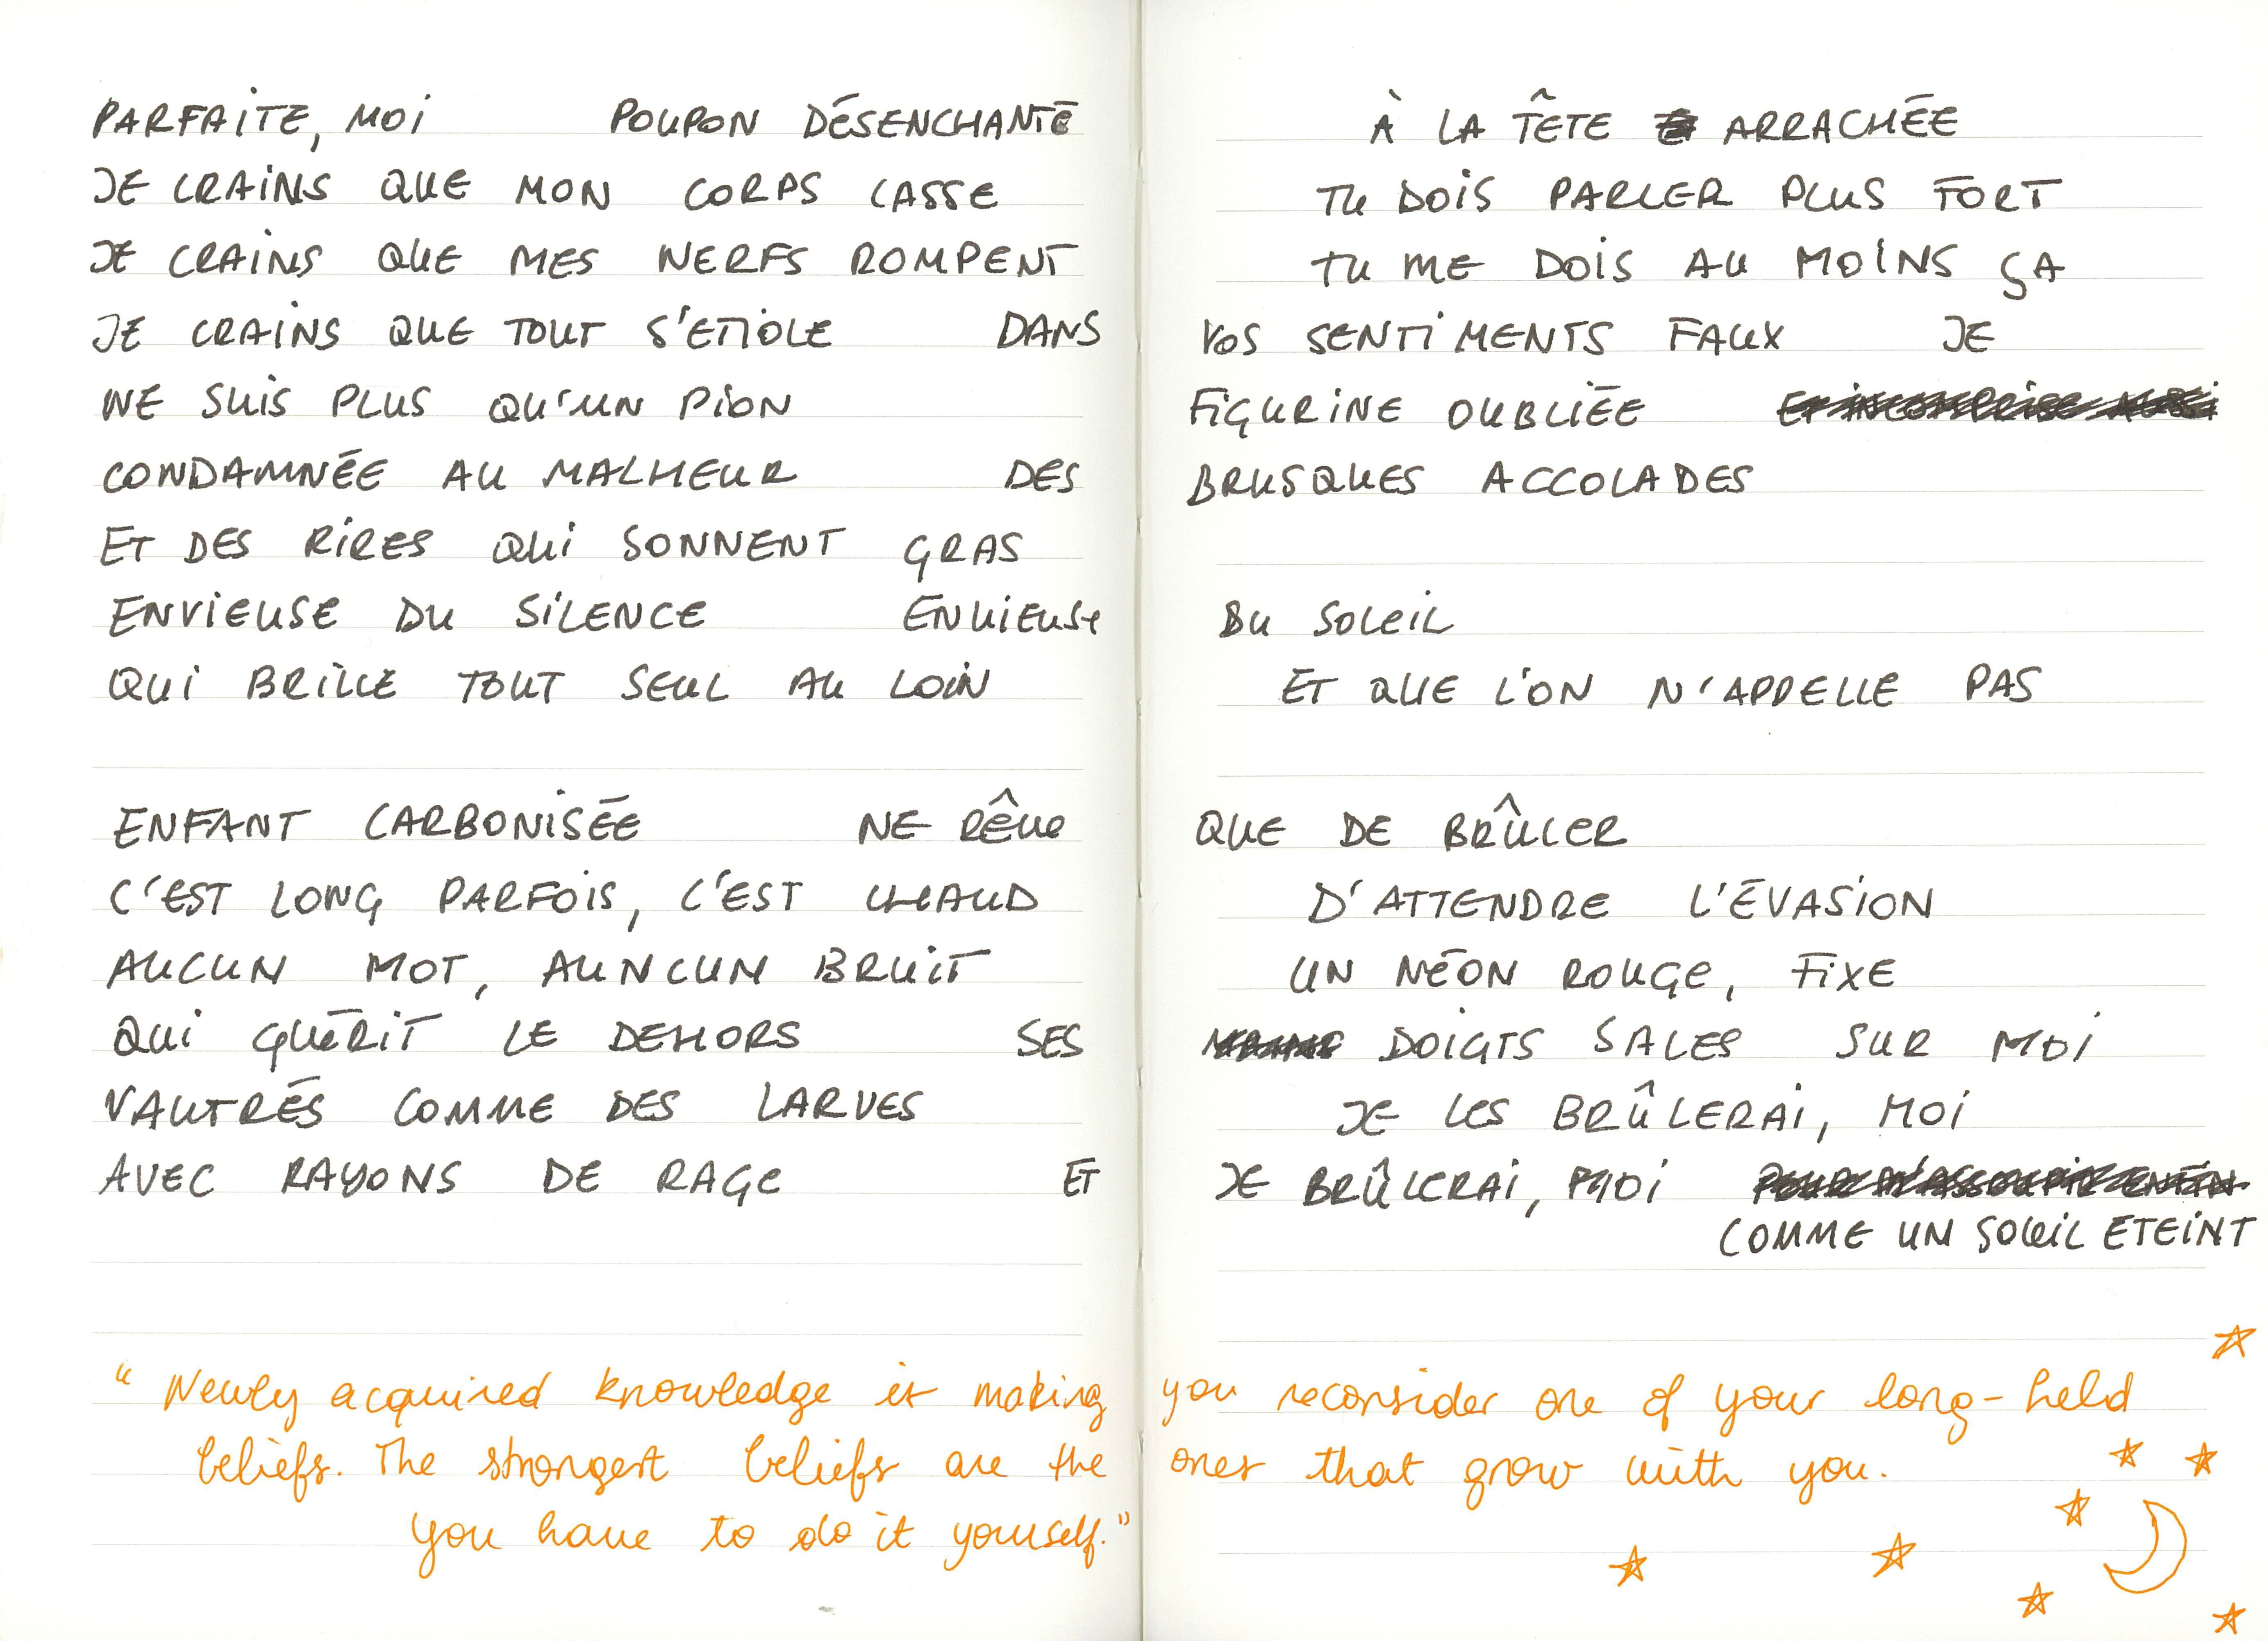 PARFAITE, MOI POUPON DÉSENCHANTÉ À LA TÊTE ARRACHÉE
JE CRAINS QUE MON CORPS CASSE TU DOIS PARLER PLUS FORT
JE CRAINS QUE MES NERFS ROMPENT TU ME DOIS AU MOINS ÇA
JE CRAINS QUE TOUT S'ETIOLE DANS VOS SENTIMENTS FAUX JE
NE SUIS PLUS QU'UN PION FIGURINE OUBLIÉE
CONDAMNÉE AU MALHEUR DES BRUSQUES ACCOLADES
ET DES RIRES QUI SONNENT GRAS
ENVIEUSE DU SILENCE ENVIEUSE DU SOLEIL
QUI BRILLE TOUT SEUL AU LOIN ET QUE L'ON N'APPELLE PAS
ENFANT CARBONISÉE NE RÊVE QUE DE BRÛLER
C'EST LONG PARFOIS, C'EST CHAUD D'ATTENDRE L'ÉVASION
AUCUN MOT, AUNCUN BRUIT UN NÉON ROUGE, FIXE
QUI GUÉRIT LE DEHORS SES DOIGTS SALES SUR MOI
VAUTRÉS COMME DES LARVES JE LES BRÛLERAI, MOI
AVEC RAYONS DE RAGE ET JE BRÛLERAI, MOI
COMME UN SOLEIL ETEINT
"Newly acquired knowledge is making you reconsider one of your long-held
beliefs. The strongest beliefs are the ones that grow with you.
you have to do it yourself."